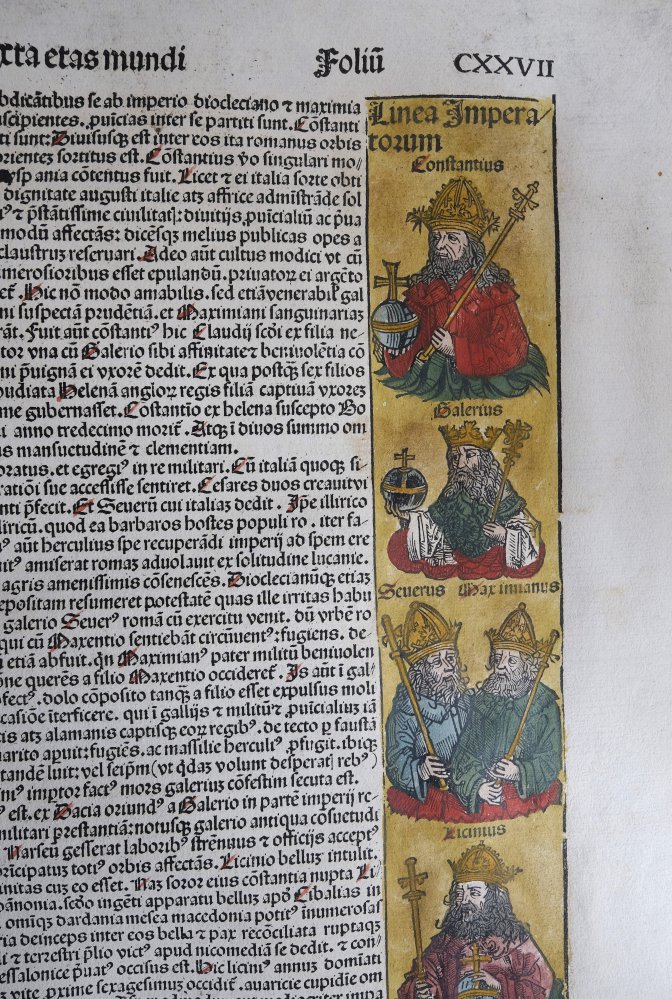 xta etas mundi Foliū CXXVII
bdicātibus se ab imperio diocleciano ⁊ maximia
uscipientes. ꝓuīcias inter se partiti sunt. Cōstanti
ti sunt: Diuisusqꝫ est inter eos ita romanus orbis
orientez sortitus est. Cōstantius v̄o singulari mo⸗
ysp ania cōtentus fuit. Licet ⁊ ei italia sorte obti
dignitate augusti italie atz affrice admīstrāde sol
⁊ p̄stātissime ciuilitatꝭ: diuitijs, ꝓuīcialiū ac p̄ua
modū affectās: dicēsqꝫ melius publicas opes a
claustruz reseruari. Adeo aūt cultus modici vt cū
umerosioribus esset epulandū. priuatorꝝ ei argēto
et. Hic nō modo amabilis. sed etiā venerabilꝭ gal
ni suspectam prudētiā. et Maximiani sanguinariaz
rāt. Fuit aūt cōstantiꝰ hic Claudij scd̄i ex filia ne⸗
tor vna cū Galerio sibi affinitateꝫ beniuolētia cō
ni p̄uignā ei vxorē dedit. Ex qua postqꝫ sex filios
pudiata Helenā anglorꝝ regis filiā captiuā vxorez
me gubernasset. Cōstantio ex helena suscepto Bo
i anno tredecimo morit̄. Atqꝫ ī diuos summo om
us mansuetudinē ⁊ clementiam.
oratus. et egregiꝰ in re militari. Cū italiā quoqꝫ si⸗
ratiōi sue accessisse sentiret. Cesares duos creauit vi
nti p̄fecit. Et Seuerū cui italiaz dedit. Ip̄e illirico
liricū. quod ea barbaros hostes populi ro. iter fa⸗
ꝰ aūt herculius spe recuperādi imperij ad spem ere
uitꝰ amiserat romaz aduolauit ex solitudine lucanie.
agris amenissimis cōsenescēs. Dioclecianūqꝫ etiaz
epositam resumeret potestatē quas ille irritas habu
galerio Seuerꝰ romā cū exercitu venit. dū vrbē ro
qui cū Maxentio sentiebāt circūuentꝰ: fugiens. de⸗
ū etiā abfuit. qn̄ Maximianꝰ pater militū beniuolen
one querēs a filio Maxentio occideret̄. Is aūt ī gal⸗
fectꝰ. dolo cōposito tanqꝫ a filio esset expulsus moli
casiōe īterficere. qui ī gallijs ⁊ militū ⁊ ꝓuīcialium iā
tis atz alamanis captisqꝫ eorꝝ regibꝰ. de tecto ꝑ faustā
marito aꝑuit: fugiēs. ac massilie herculiꝰ ꝓfugit. ibiqꝫ
tandē luit: vel seip̄m (vt qdaz volunt desperatꝭ rebꝰ)
niꝰ imp̄tor factꝰ mors galeriuz cōfestim secuta est.
ꝰ est. ex Dacia oriundꝰ a Galerio in partē imperij re⸗
militari prestantiā: notusqꝫ galerio antiqua cōsuetudi
Narseū gesserat laboribꝰ strēnuus ⁊ officijs acceptꝰ
rincipatuz totiꝰ orbis affectās. Licinio belluz intulit.
initas cuz eo esset. Naz soror eius cōstantia nupta Li
pānonia. scd̄o ingēti apparatu belluz apd̄ Cibalias in
omīqꝫ dardania mesea macedonia potitꝰ inumerosas
ria deinceps inter eos bella ⁊ pax recōciliata ruptaqꝫ
i ⁊ terzestri p̄lio victꝰ apud nicomediā se dedit. ⁊ con⸗
essalonice p̄uatꝰ occisus est. Hic liciniꝰ annuz domīati
vite, ꝓxime sexagesimuz occidit. auaricie cupidīe om
Linea Impera⸗
torum
Constantius
Galerius
Seuerus Maximianus
Licinius